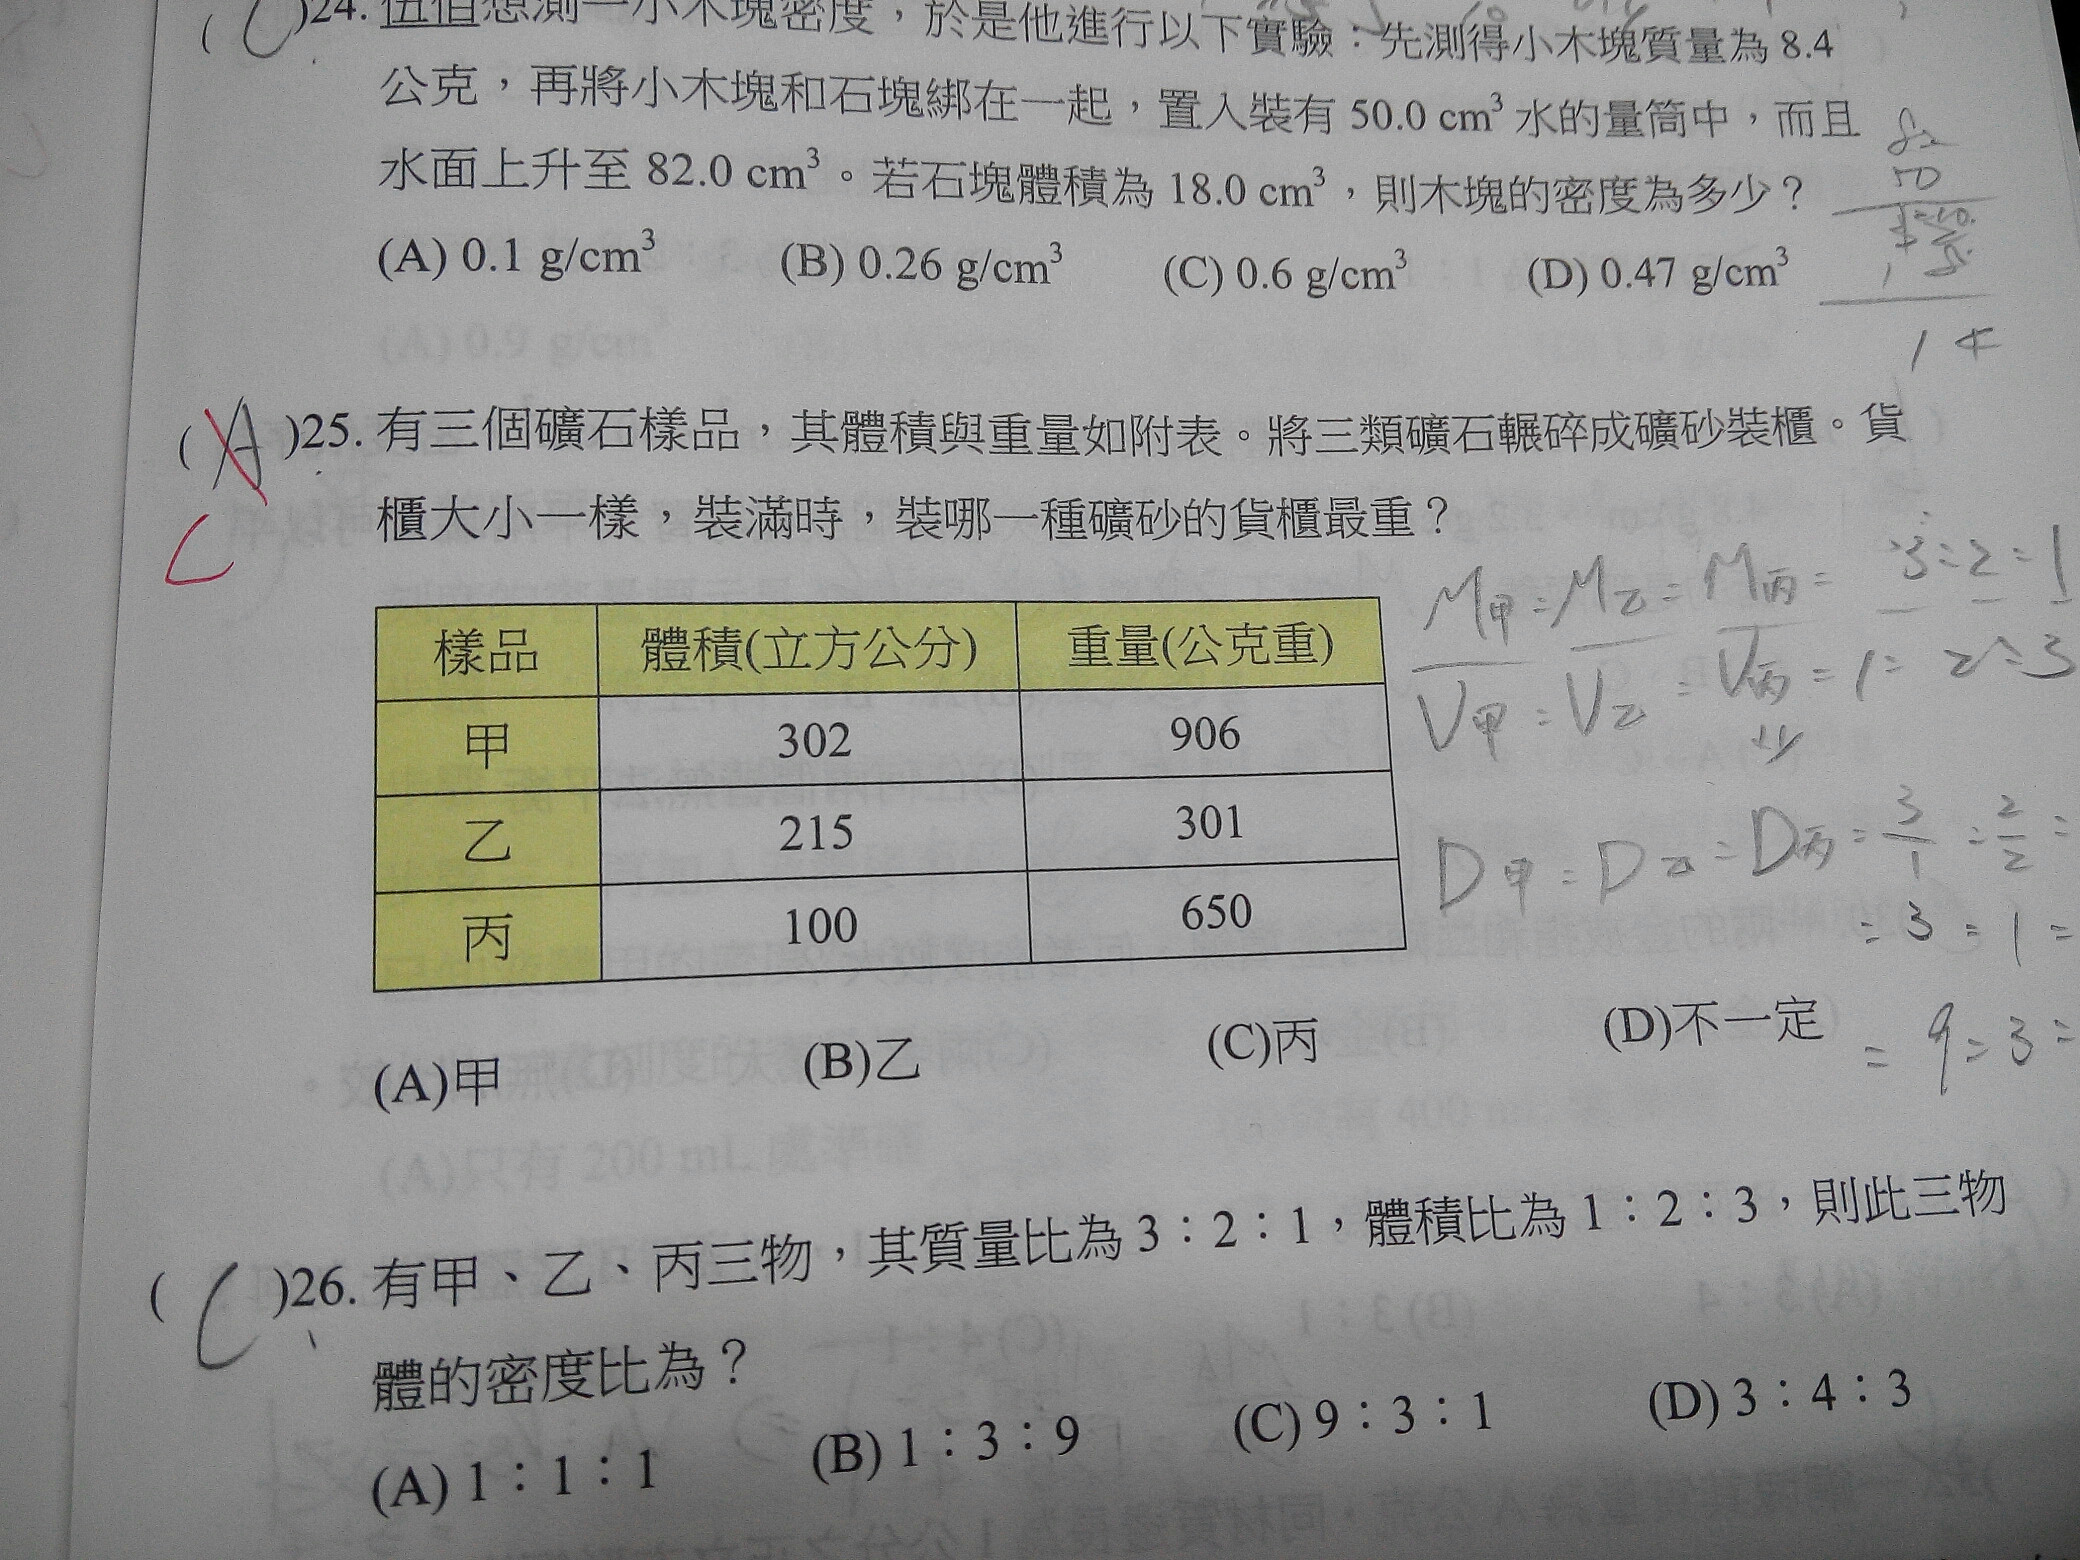 (C)24. 伍伯想測一小木塊密度，於是他進行以下實驗：先測得小木塊質量為 8.4
公克，再將小木塊和石塊綁在一起，置入裝有 50.0 cm³ 水的量筒中，而且
水面上升至 82.0 cm³。若石塊體積為 18.0 cm³，則木塊的密度為多少？
(A) 0.1 g/cm³ (B) 0.26 g/cm³ (C) 0.6 g/cm³ (D) 0.47 g/cm³
82
50
14
(A)25. 有三個礦石樣品，其體積與重量如附表。將三類礦石輾碎成礦砂裝櫃。貨
C
櫃大小一樣，裝滿時，裝哪一種礦砂的貨櫃最重？
樣品 體積(立方公分) 重量(公克重)
甲 302 906
乙 215 301
丙 100 650
M甲:M乙:M丙= 3:2:1
V甲:V乙:V丙=1:2:3
D甲:D乙:D丙=3/1:2/2:
=3:1:
=9:3:
(A)甲 (B)乙 (C)丙 (D)不一定
(C)26. 有甲、乙、丙三物，其質量比為 3：2：1，體積比為 1：2：3，則此三物
體的密度比為？
(A) 1：1：1 (B) 1：3：9 (C) 9：3：1 (D) 3：4：3